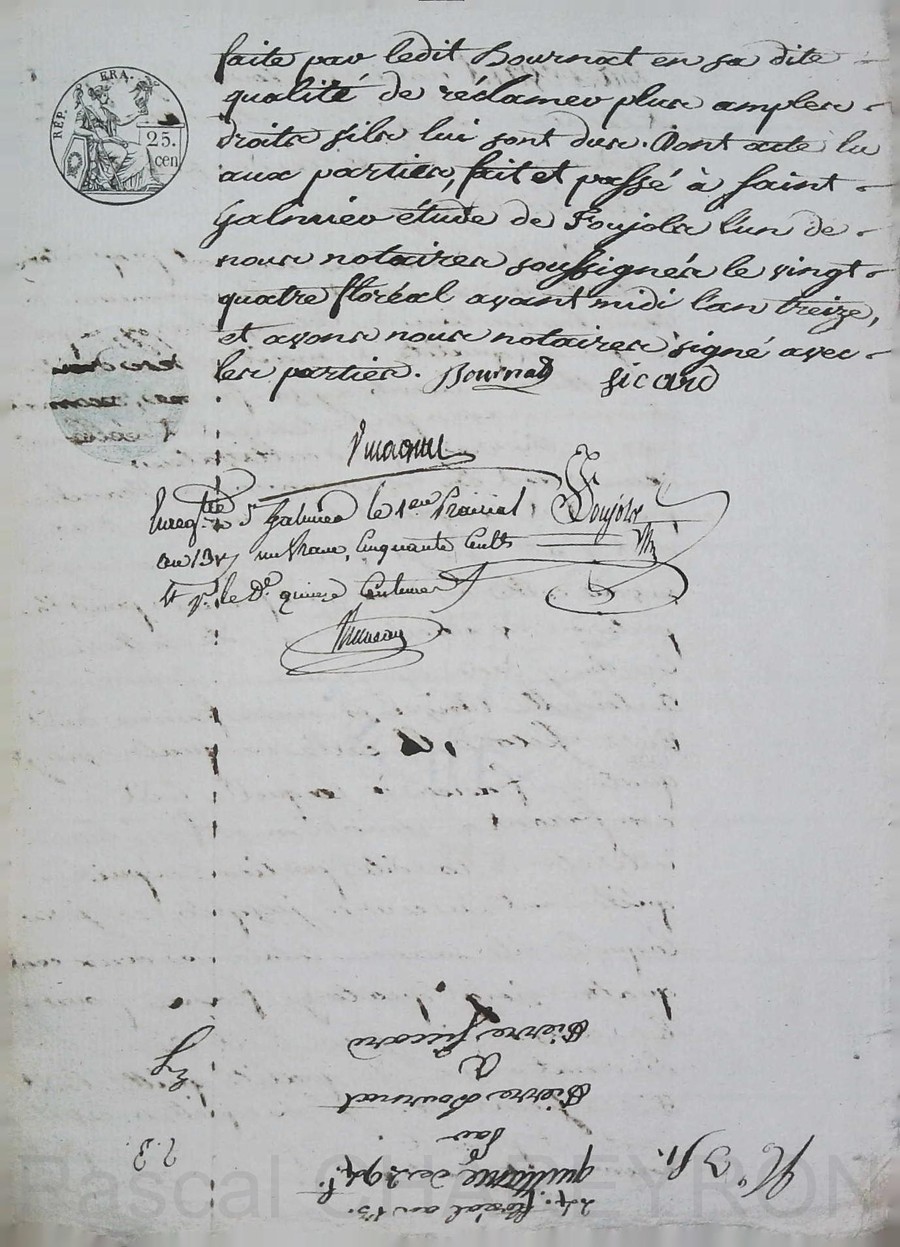 REP. FRA.
25.
cen
faite par ledit Bournat en sa dite
qualité de réclamer plus amples
droits s'ils lui sont dus. Dont acte lu
aux parties, fait et passé à Saint
Galmier étude de Foujols l'un de
nous notaires soussignés le vingt
quatre floréal avant midi l'an treize,
et avons nous notaires signé avec
les parties. Bournat Sicard
Foujols
Enregtré à St Galmier le 1er Prairial
an 13 un franc, cinquante cents
et pr. le De quinze centimes
24. floréal an 13.
quittance de 294 f.
Par
Pierre Bournat
A
Pierre Siccard
Pascal CHABEYRON